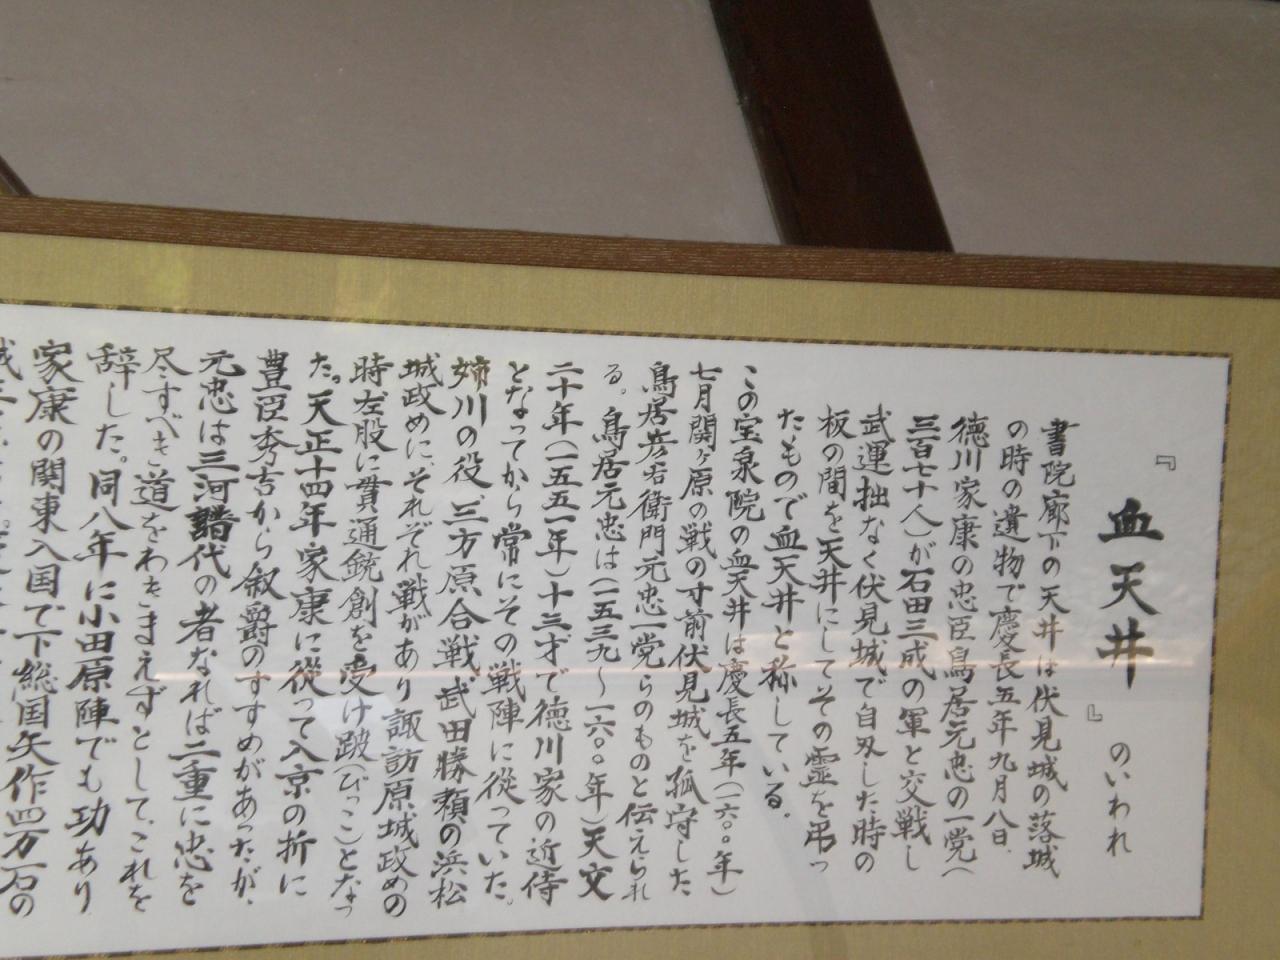 『血天井』のいわれ
書院廊下の天井は伏見城の落城
の時の遺物で慶長五年九月八日
徳川家康の忠臣鳥居元忠の一党(
三百七十人)が石田三成の軍と交戦し
武運拙なく伏見城で自刄した時の
板の間を天井にしてその霊を弔っ
たもので血天井と称している。
この宝泉院の血天井は慶長五年(一六〇〇年)
七月関ヶ原の戦の寸前伏見城を孤守した
鳥居彦右衛門元忠一党らのものと伝えられ
る。鳥居元忠は(一五三九〜一六〇〇年)天文
二十年(一五五一年)十三才で徳川家の近侍
となってから常にその戦陣に従っていた。
姉川の役、三方原合戦、武田勝頼の浜松
城攻めに、それぞれ戦があり諏訪原城攻めの
時左股に貫通銃創を受け跛(びっこ)となっ
た。天正十四年家康に従って入京の折に
豊臣秀吉から叙爵のすすめがあったが、
元忠は三河譜代の者なれば二重に忠を
尽すべき道をわきまえずとして、これを
辞した。同八年に小田原陣でも功あり
家康の関東入国で下総国矢作四万石の
城主